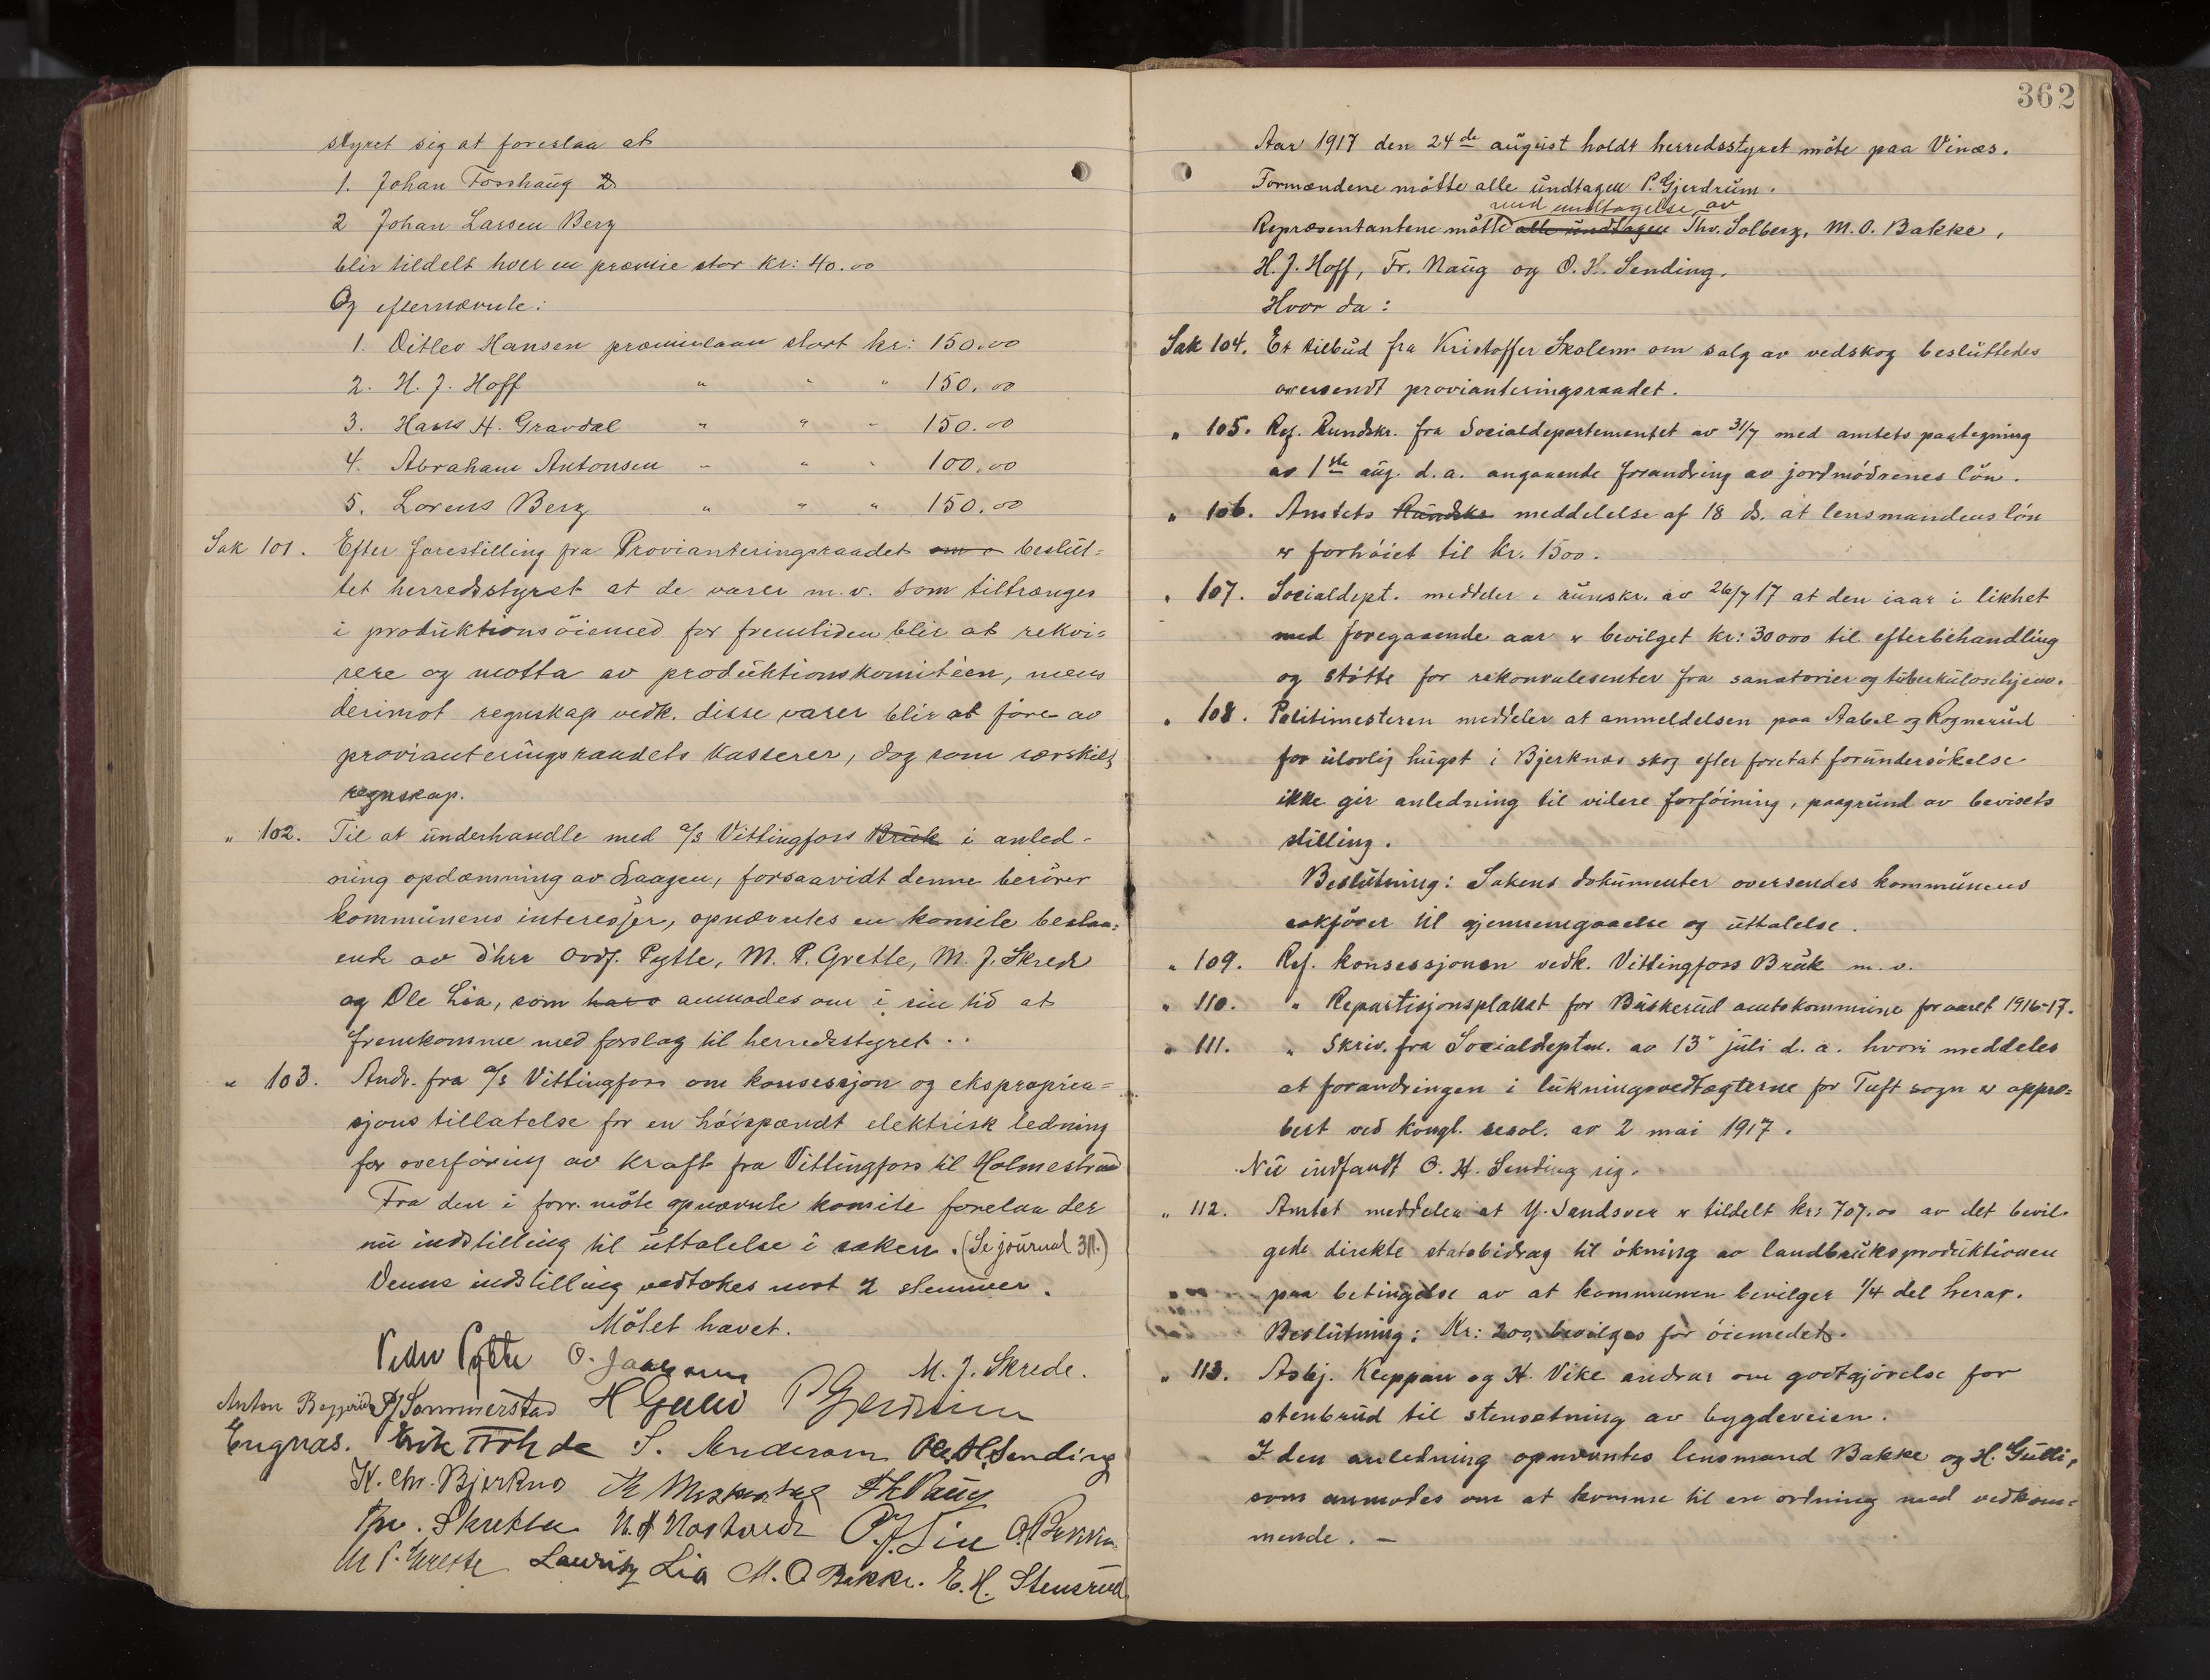 styret sig at foreslaa at
1. Johan Fosshaug
2 Johan Larsen Berg
blir tildelt hver en præmie stor kr: 40.00
Og efternævnte:
1. Ditlev Hansen præmielaan stort kr: 150.00
2. H. J. Hoff " " " 150.00
3. Hans H. Gravdal " " " 150.00
4. Abraham Antonsen " " " 100.00
5. Lorens Berg " " " 150.00
Sak 101. Efter forestilling fra Provianteringsraadet beslut=
tet herredsstyret at de varer m.v. som tiltrænges
i produktionsöiemed for fremtiden blir at rekvi=
rere og motta av produktionskomitéen, mens
derimot regnskap vedk. disse varer blir at före av
provianteringsraadets kasserer, dog som særskilt
regnskap.
" 102. Til at underhandle med A/S Vittingfoss Bruk i anled-
ning opdæmning av Laagen, forsaavidt denne berörer
kommunens interesser, opnævntes en komite bestaa=
ende av d'hrr ordf. Pytte, M. P. Grette, M. J. Skrede
og Ole Lia, som anmodes om i sin tid at
fremkomme med forslag til herredsstyret.
" 103. Andr. fra A/S Vittingfoss om konsessjon og ekspropria=
sjons tillatelse for en höispændt elektrisk ledning
for overföring av kraft fra Vittingfoss til Holmestrand
Fra den i forr. möte opnævnte komite forelaa der
nu indstilling til uttalelse i saken. (Se journal 311.)
Denne indstilling vedtokes mot 2 stemmer.
Mötet hævet.
Peder Pytte O. Jaaresen M. J. Skrede.
Anton P. Sommerstad H Gulli P Gjerdrum
Engnæs. Erik Trohde S. Anderson Ole H. Sending
K. Chr. Bjerknæs Fr Naug
Thv. Skretta O. J. Lia O. Bakke
M P. Grette Lauritz Lia M. O Bakke. E. H. Stensrud
362
Aar 1917 den 24de august holdt herredsstyret möte paa Vinæs.
Formændene mötte alle undtagen P. Gjerdrum.
med undtagelse av
Repræsentantene mötte alle undtagen Thv. Solberg, M. O. Bakke,
H. J. Hoff, Fr. Naug og O. H. Sending.
Hvor da:
Sak 104. Et tilbud fra Kristoffer Skolem om salg av vedskog besluttedes
oversendt provianteringsraadet.
" 105. Ref. Rundskr. fra Socialdepartementet av 31/7 med amtets paategning
av 1ste aug. d.a. angaaende forandring av jordmödrenes lön.
" 106. Amtets Rundskr meddelelse af 18 ds. at lensmandens lön
er forhöiet til kr. 1500.
" 107. Socialdept. meddeler i runskr. av 26/7 17 at den iaar i likhet
med foregaaende aar er bevilget kr: 30000 til efterbehandling
og stötte for rekonvalesenter fra sanatorier og tuberkulosehjem.
" 108. Politimesteren meddeler at anmeldelsen paa Aabel og Rognerud
for ulovlig hugst i Bjerknæs skog efter foretat forundersökelse
ikke gir anledning til videre forföining, paagrund av bevisets
stilling.
Beslutning: Sakens dokumenter oversendes kommunens
sakförer til gjennemgaaelse og uttalelse.
" 109. Ref. konsessjonen vedk. Vittingfoss Bruk m.v.
" 110. " Repartisjonsplakat for Buskerud amtskommune for aaret 1916-17.
" 111. " Skriv. fra Socialdeptem. av 13' juli d.a. hvori meddeles
at forandringen i lukningsvedtægterne for Tuft sogn er appro=
bert ved kongl. resol. av 2 mai 1917.
Nu indfandt O. H. Sending sig.
" 112. Amtet meddeler at Y. Sandsver er tildelt kr: 707.00 av det bevil-
gede direkte statsbidrag til ökning av landbruksproduktionen
paa betingelse av at kommunen bevilger 1/4 del herav.
Beslutning: Kr: 200, bevilges for öiemedet.
" 113. Asbj. Kleppan og H. Vike andrar om godtgjörelse for
stenbrud til stensetning av bygdeveien.
I den anledning opnævntes lensmand Bakke og H. Gulli,
som anmodes om at komme til en ordning med vedkom=
mende. —